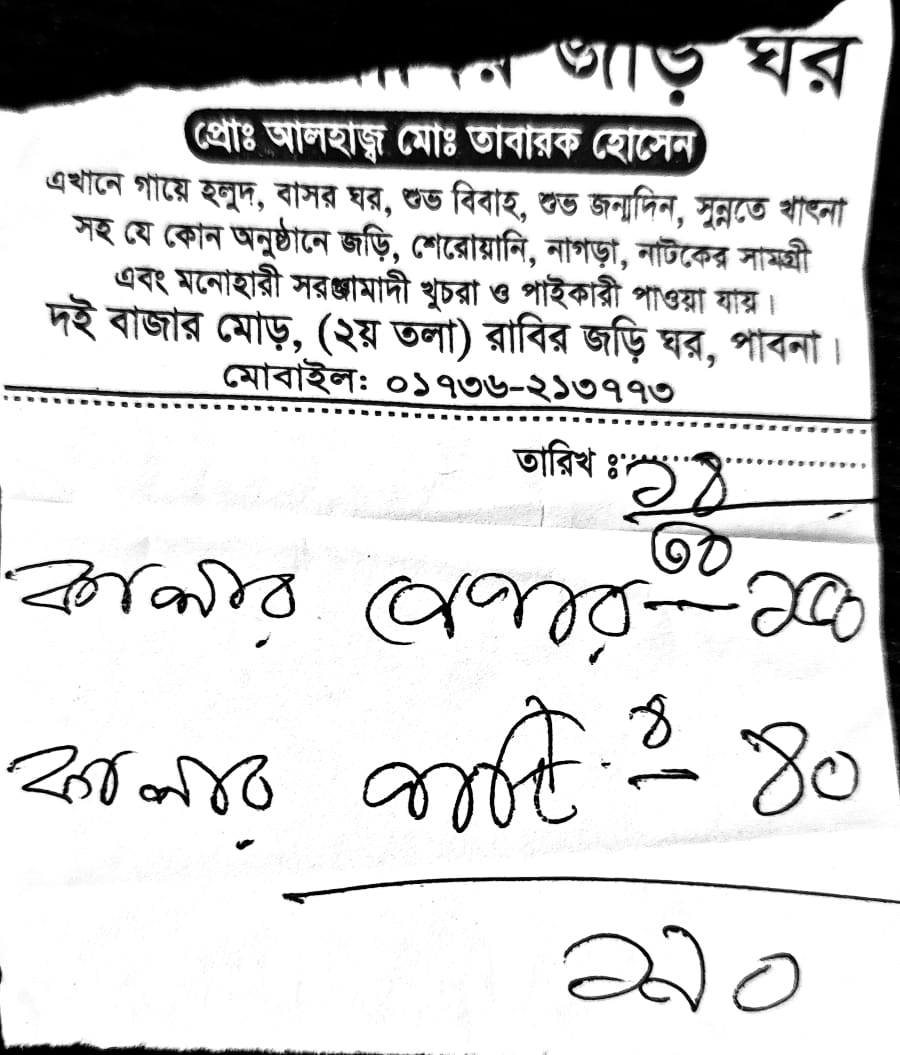 রাবির জড়ি ঘর
প্রোঃ আলহাজ্ব মোঃ তাবারক হোসেন
এখানে গায়ে হলুদ, বাসর ঘর, শুভ বিবাহ, শুভ জন্মদিন, সুন্নতে খাৎনা
সহ যে কোন অনুষ্ঠানে জড়ি, শেরোয়ানি, নাগড়া, নাটকের সামগ্রী
এবং মনোহারী সরঞ্জামাদী খুচরা ও পাইকারী পাওয়া যায়।
দই বাজার মোড়, (২য় তলা) রাবির জড়ি ঘর, পাবনা।
মোবাইল: ০১৭৩৬-২১৩৭৭৩
তারিখ ঃ
কালার পেপার —
কালার — ৪০